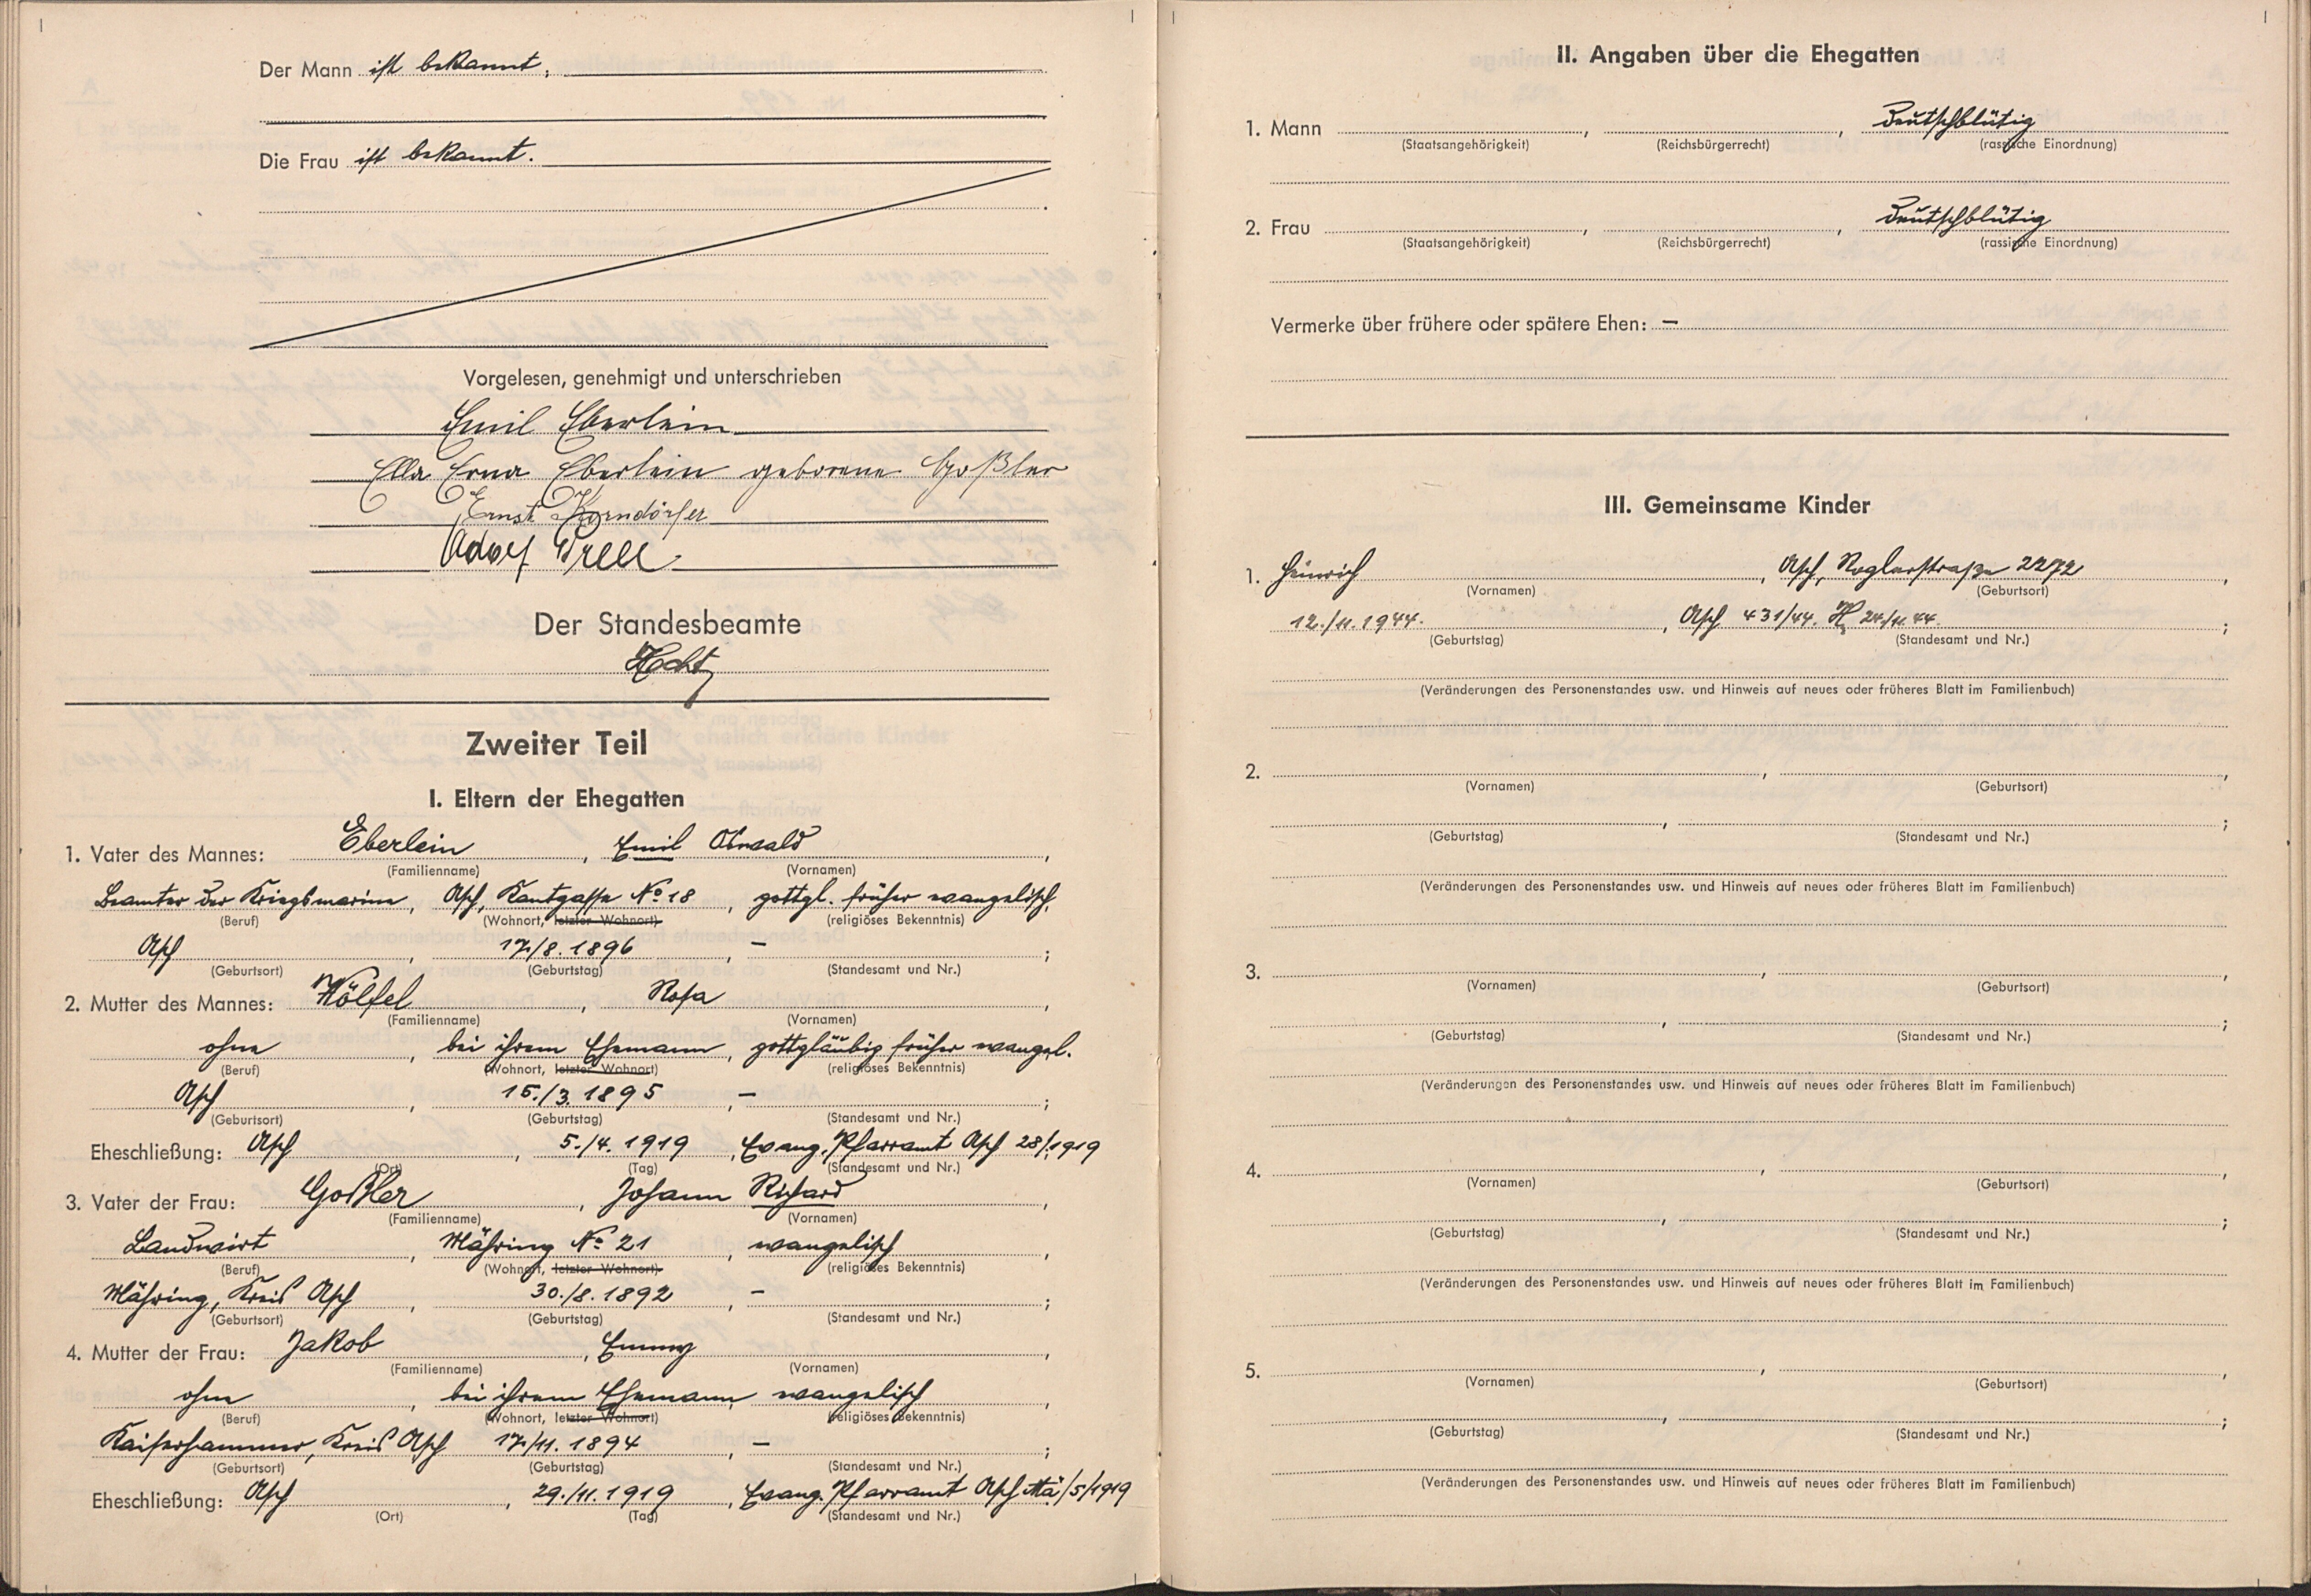 Der Mann ist bekannt.
Die Frau ist bekannt.
Vorgelesen, genehmigt und unterschrieben
Emil Eberlein
Ella Erna Eberlein geborene Goßler
Ernst Korndörfer
Adolf
Der Standesbeamte
Zweiter Teil
I. Eltern der Ehegatten
1. Vater des Mannes: Eberlein, Emil Oswald
(Familienname) (Vornamen)
Beamter der Kriegsmarine, Asch, Kantgasse No 18, gottgl. früher evangelisch,
(Beruf) (Wohnort, letzter Wohnort) (religiöses Bekenntnis)
Asch, 17./8. 1896, – ;
(Geburtsort) (Geburtstag) (Standesamt und Nr.)
2. Mutter des Mannes: Wölfel, Rosa,
(Familienname) (Vornamen)
ohne, bei ihrem Ehemann, gottgläubig früher evangel.
(Beruf) (Wohnort, letzter Wohnort) (religiöses Bekenntnis)
Asch, 15./3. 1895, – ;
(Geburtsort) (Geburtstag) (Standesamt und Nr.)
Eheschließung: Asch, 5./4. 1919, Evang. Pfarramt Asch 28/1919
(Ort) (Tag) (Standesamt und Nr.)
3. Vater der Frau: Goßler, Johann Richard,
(Familienname) (Vornamen)
Landwirt, Mähring No 21, evangelisch,
(Beruf) (Wohnort, letzter Wohnort) (religiöses Bekenntnis)
Mähring, Kreis Asch, 30./8. 1892, – ;
(Geburtsort) (Geburtstag) (Standesamt und Nr.)
4. Mutter der Frau: Jakob, Emmy,
(Familienname) (Vornamen)
ohne, bei ihrem Ehemann, evangelisch,
(Beruf) (Wohnort, letzter Wohnort) (religiöses Bekenntnis)
Kaiserhammer, Kreis Asch 17./11. 1894, – ;
(Geburtsort) (Geburtstag) (Standesamt und Nr.)
Eheschließung: Asch, 29./11. 1919, Evang. Pfarramt Asch Mä/5/1919
(Ort) (Tag) (Standesamt und Nr.)
II. Angaben über die Ehegatten
1. Mann , , Deutschblütig
(Staatsangehörigkeit) (Reichsbürgerrecht) (rassische Einordnung)
2. Frau , , Deutschblütig
(Staatsangehörigkeit) (Reichsbürgerrecht) (rassische Einordnung)
Vermerke über frühere oder spätere Ehen: –
III. Gemeinsame Kinder
1. Heinrich, Asch, Roglerstraße 2272,
(Vornamen) (Geburtsort)
12./11. 1944., Asch 431/44. 24/11.44. ;
(Geburtstag) (Standesamt und Nr.)
(Veränderungen des Personenstandes usw. und Hinweis auf neues oder früheres Blatt im Familienbuch)
2. , ,
(Vornamen) (Geburtsort)
, ;
(Geburtstag) (Standesamt und Nr.)
(Veränderungen des Personenstandes usw. und Hinweis auf neues oder früheres Blatt im Familienbuch)
3. , ,
(Vornamen) (Geburtsort)
, ;
(Geburtstag) (Standesamt und Nr.)
(Veränderungen des Personenstandes usw. und Hinweis auf neues oder früheres Blatt im Familienbuch)
4. , ,
(Vornamen) (Geburtsort)
, ;
(Geburtstag) (Standesamt und Nr.)
(Veränderungen des Personenstandes usw. und Hinweis auf neues oder früheres Blatt im Familienbuch)
5. , ,
(Vornamen) (Geburtsort)
, ;
(Geburtstag) (Standesamt und Nr.)
(Veränderungen des Personenstandes usw. und Hinweis auf neues oder früheres Blatt im Familienbuch)